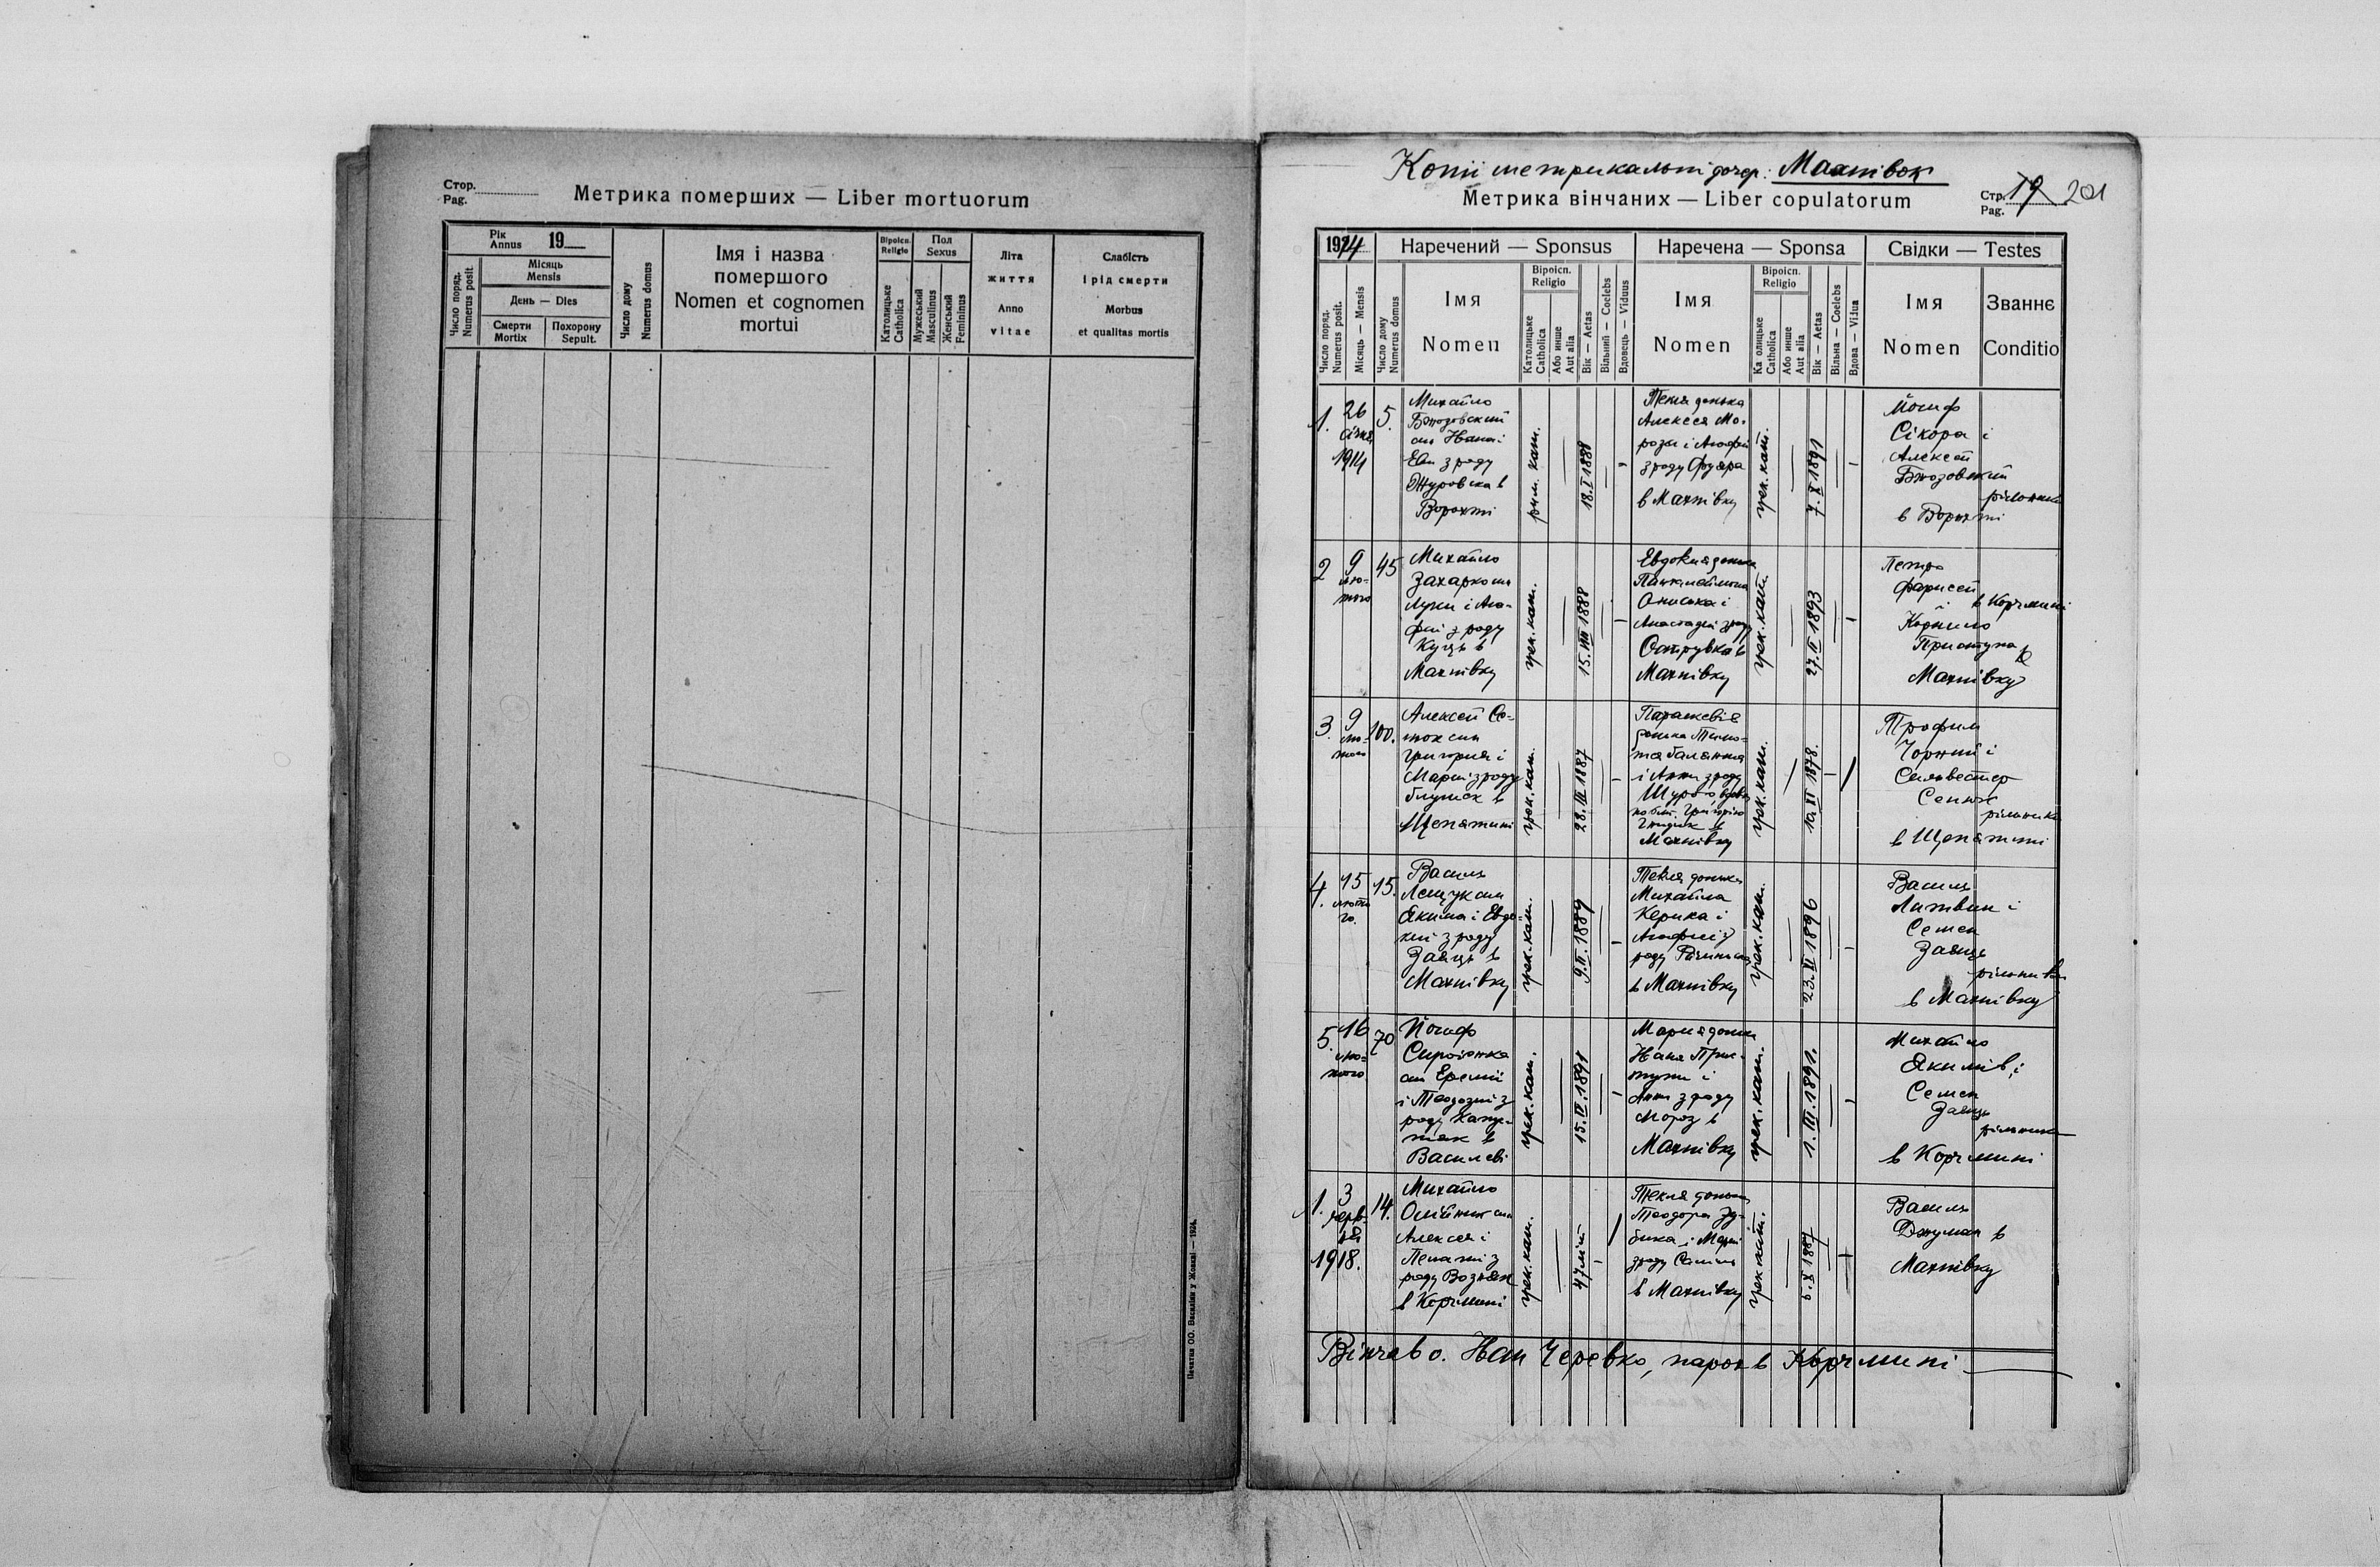 Стор.
Pag.
Метрика померших — Liber mortuorum
Рік
Annus 19
Місяць
Mensis
День — Dies
Смерти
Mortix
Похорону
Sepult.
Число поряд.
Numerus posit.
Число дому
Numerus domus
Імя і назва
помершого
Nomen et cognomen
mortui
Віроісп.
Religio
Католицьке
Catholica
Пол
Sexus
Мужеський
Masculinus
Женський
Femininus
Літа
життя
Anno
vitae
Слабість
і рід смерти
Morbus
et qualitas mortis
Печатня ОО. Василіян у Жовкві — 1924.
Копії метрикальні дочер: Махнівок
Метрика вінчаних — Liber copulatorum
Стр.
Pag. 19 201
1914
Наречений — Sponsus
Наречена — Sponsa
Свідки — Testes
Число поряд.
Numerus posit.
Місяць — Mensis
Число дому
Numerus domus
Імя
Nomen
Віроісп.
Religio
Католицьке
Catholica
Або инше
Aut alia
Вік — Aetas
Вільний — Coelebs
Вдовець — Viduus
Імя
Nomen
Віроісп.
Religio
Ка олицьке
Catholica
Або инше
Aut alia
Вік — Aetas
Вільна — Coelebs
Вдова — Vidua
Імя
Nomen
Званнє
Conditio
1.
26
січня
1914
5.
Михайло
син Івана і
Еви з роду
Журовска в
Ворохті
рим. кат.
18.I 1888
Текля донька
Алексея Мо-
рози і Агафії
з роду
в Махнівку
грек. кат.
7.X 1891
Йосиф
Сікора і
Алексей
рільники
в Ворохті
2
9
лю-
того
45
Михайло
Захарко син
Луки і Ага-
фії з роду
Куць в
Махнівку
грек. кат.
15.VIII 1888
Евдокия донька
Пантелеймона
Ониська і
Анастазії з роду
в
Махнівку
грек. кат.
27.II 1893
Петро
Фарисей
в Корчмині
і
Корнило
Приступа
в
Махнівку
3.
9
лю-
того
100.
Алексей Се-
нюк син
Григорія і
Марії з роду
в
Щепятині
грек. кат.
28.III 1887
Параскевія
донька Тимо-
тея
і Анни з роду
вдова
по біт. Григорію
в
Махнівку
грек. кат.
10.XI 1878.
Трофим
Чорний і
Сильвестер
Сенюк
рільники
в Щепятині
4.
15
люто
го.
15.
Василь
Лещук син
Якима і Евдо-
кії з роду
Заяць в
Махнівку
грек. кат.
9.II.1889
Текля донька
Михайла
Керика і
Агафії з
роду
в Махнівку
грек. кат.
23.VI 1896
Василь
Литвин і
Семен
Заяць
рільники
в Махнівку
5.
16
лю-
того
70
Йосиф
син Еремії
і Теодозії з
роду
в
Василеві
грек. кат.
15.IV.1891
Мария донька
Івана Прис-
тупи і
Анни з роду
Мороз в
Махнівку
грек. кат.
1.III 1891.
Михайло
Якимів і
Семен
Заяць
рільники
в Корчмині
1.
3
черв-
ня
1918.
14.
Михайло
Олійник син
Алексея і
Пелагії з
роду Возняк
в Корчмині
грек. кат.
47 літ
Текля донька
Теодора
і Марії
з роду
в Махнівку
грек. кат.
6.X 1887
Василь
Джуман в
Махнівку
Вінчав о. Іван Черевко, парох в Корчмині